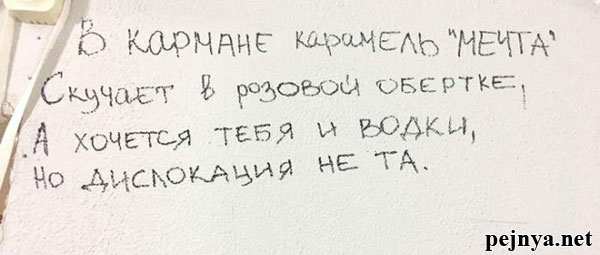 В КАРМАНЕ КАРАМЕЛЬ "МЕЧТА"
СКУЧАЕТ В РОЗОВОЙ ОБЕРТКЕ,
А ХОЧЕТСЯ ТЕБЯ И ВОДКИ,
НО ДИСЛОКАЦИЯ НЕ ТА.
pejnya.net